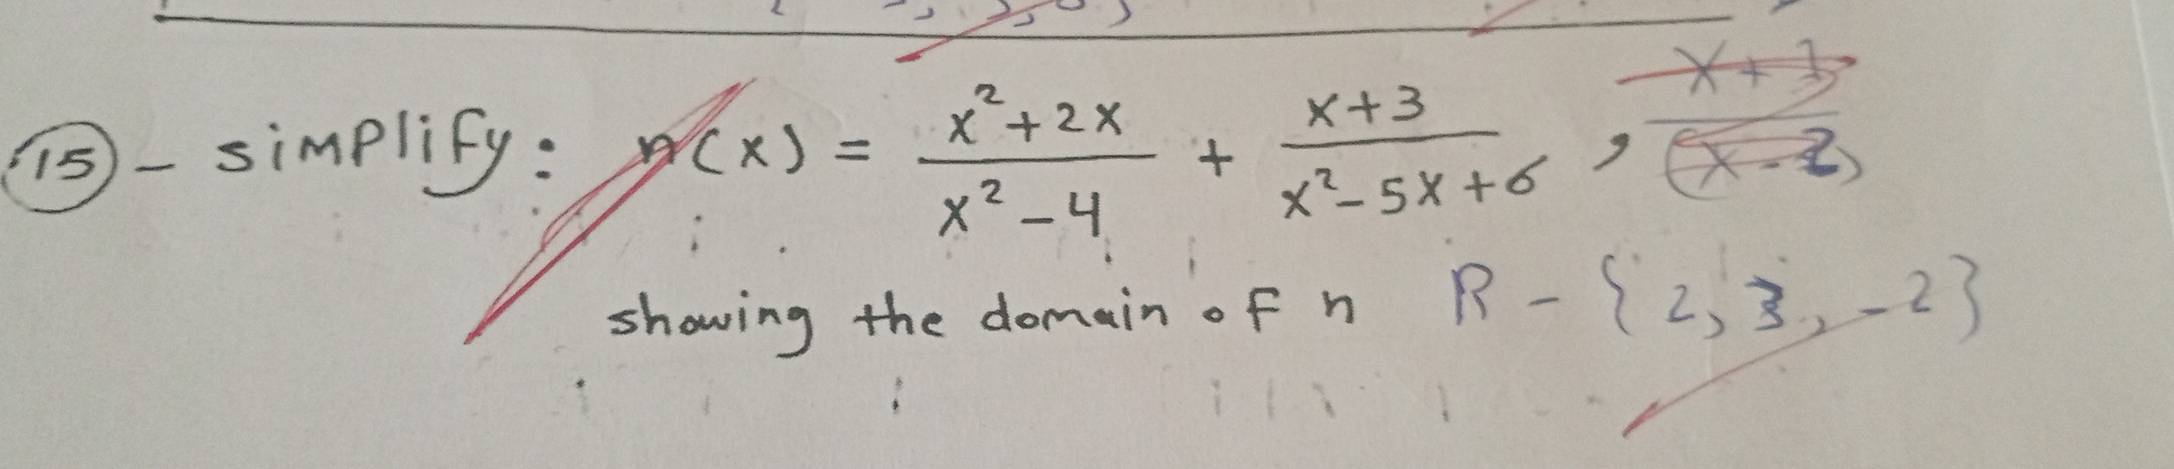 15 - simplify: n(x) = (x² + 2x)/(x² - 4) + (x + 3)/(x² - 5x + 6) , (x + 3)/(x - 2)
showing the domain of n R - {2, 3, -2}